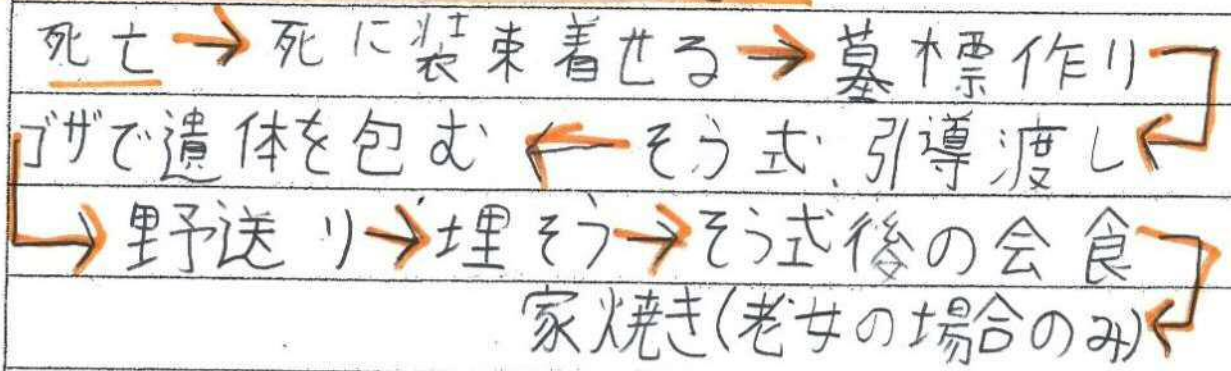 死亡→死に装束着せる→墓標作り
ゴザで遺体を包む←そう式、引導渡し
野送り→埋そう→そう式後の会食
家焼き(老女の場合のみ)